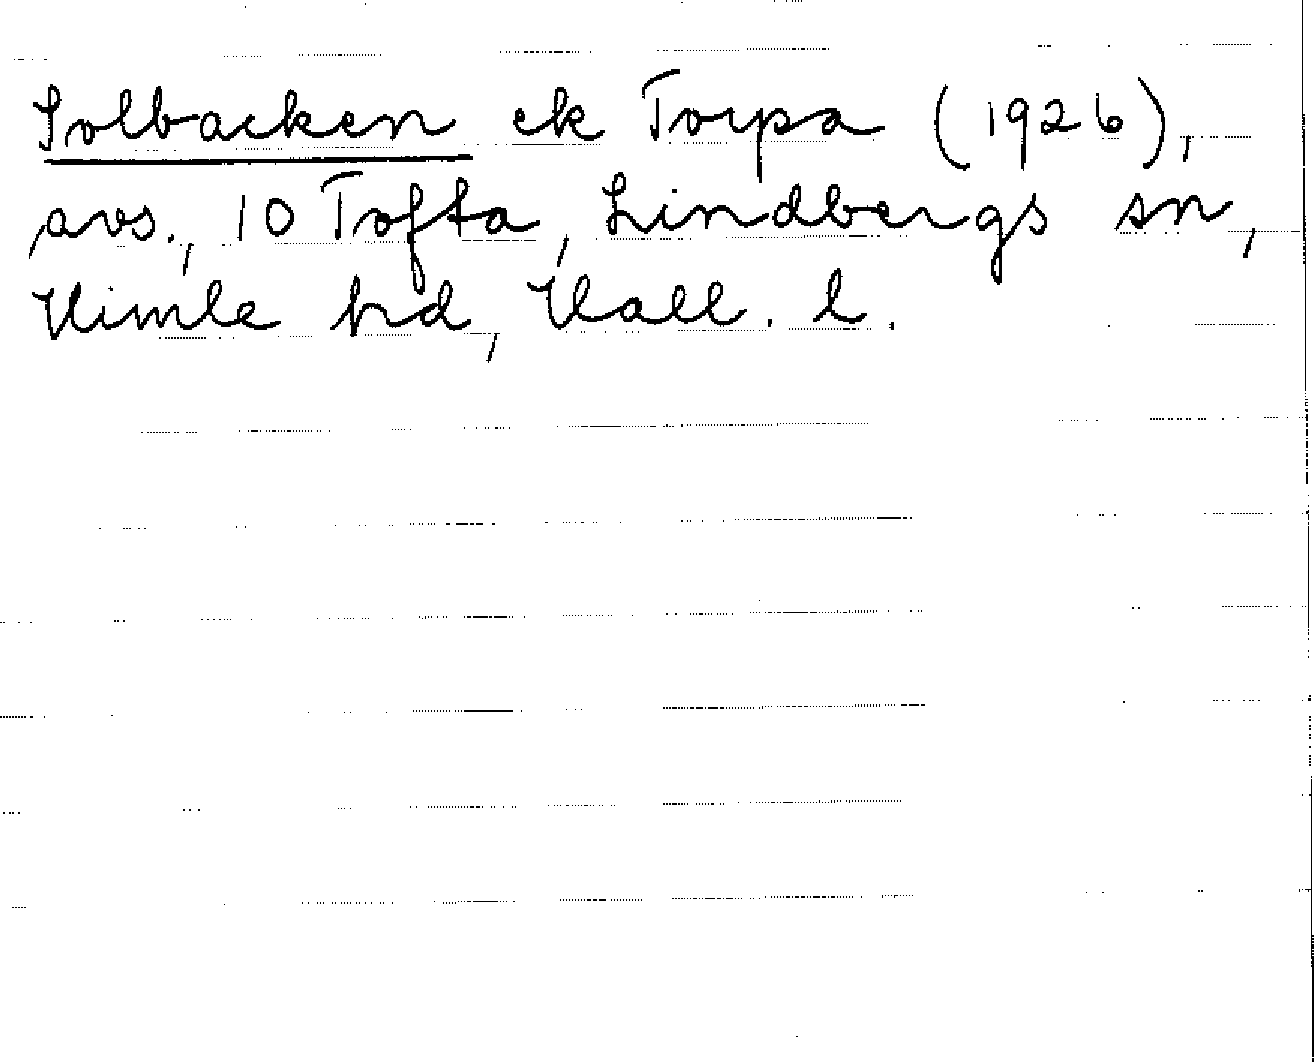 Solbacken ek Torpa (1926),
avs., 10 Tofta, Lindbergs sn,
Himle hd, Hall. l.